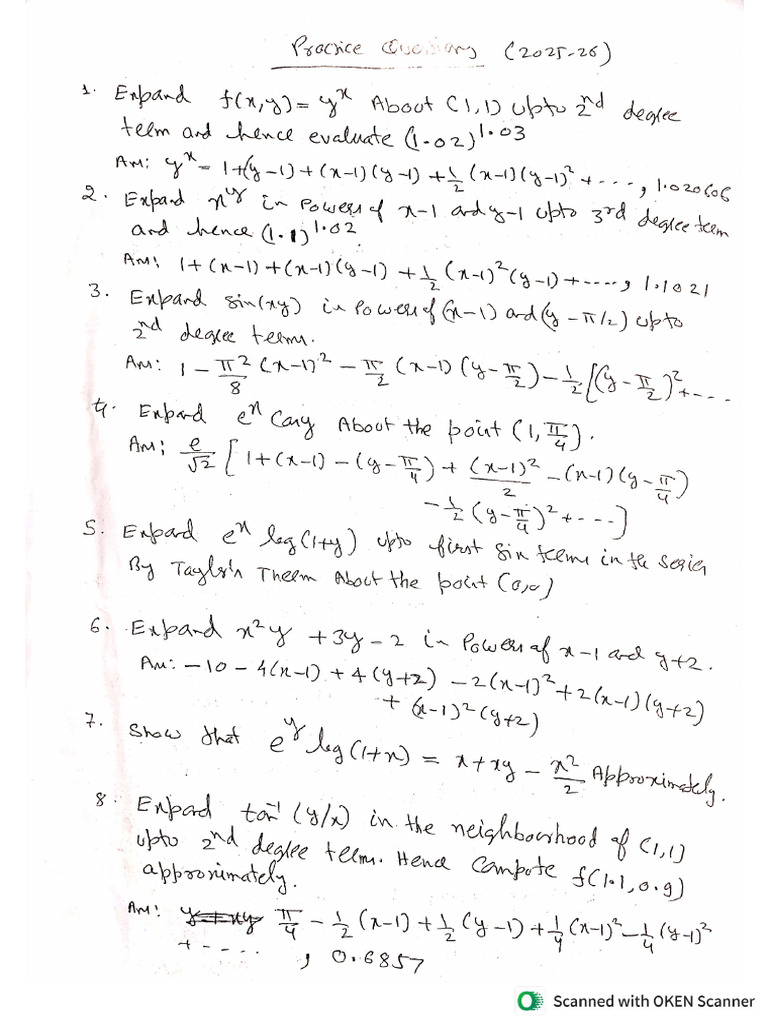 Practice Questions (2025-26)
1. Expand f(x,y) = y^x About (1,1) upto 2nd degree
term and hence evaluate (1.02)^1.03
Ans: y^x = 1+(y-1)+(x-1)(y-1)+1/2 (x-1)(y-1)^2 + ...., 1.020606
2. Expand x^y in Powers of x-1 and y-1 upto 3rd degree term
and hence (1.1)^1.02
Ans: 1+(x-1)+(x-1)(y-1)+1/2 (x-1)^2 (y-1)+...., 1.1021
3. Expand sin(xy) in Powers of (x-1) and (y-π/2) upto
2nd degree term.
Ans: 1 - π^2/8 (x-1)^2 - π/2 (x-1)(y-π/2) - 1/2 [(y-π/2)^2 + ....
4. Expand e^x Cosy About the point (1, π/4).
Ans: e/√2 [1+(x-1)-(y-π/4)+(x-1)^2/2 -(x-1)(y-π/4)
-1/2 (y-π/4)^2 + ....]
5. Expand e^x log(1+y) upto first Six terms in the series
By Taylor's Theorem About the point (0,0)
6. Expand x^2y + 3y - 2 in Powers of x-1 and y+2.
Ans: -10 - 4(x-1) + 4(y+2) - 2(x-1)^2 + 2(x-1)(y+2)
+ (x-1)^2 (y+2)
7. Show that e^y log(1+x) = x + xy - x^2/2 Approximately.
8. Expand tan^-1 (y/x) in the neighbourhood of (1,1)
upto 2nd degree term. Hence Compute f(1.1, 0.9)
approximately.
Ans: π/4 - 1/2 (x-1) + 1/2 (y-1) + 1/4 (x-1)^2 - 1/4 (y-1)^2
+ ....., 0.6857
Scanned with OKEN Scanner